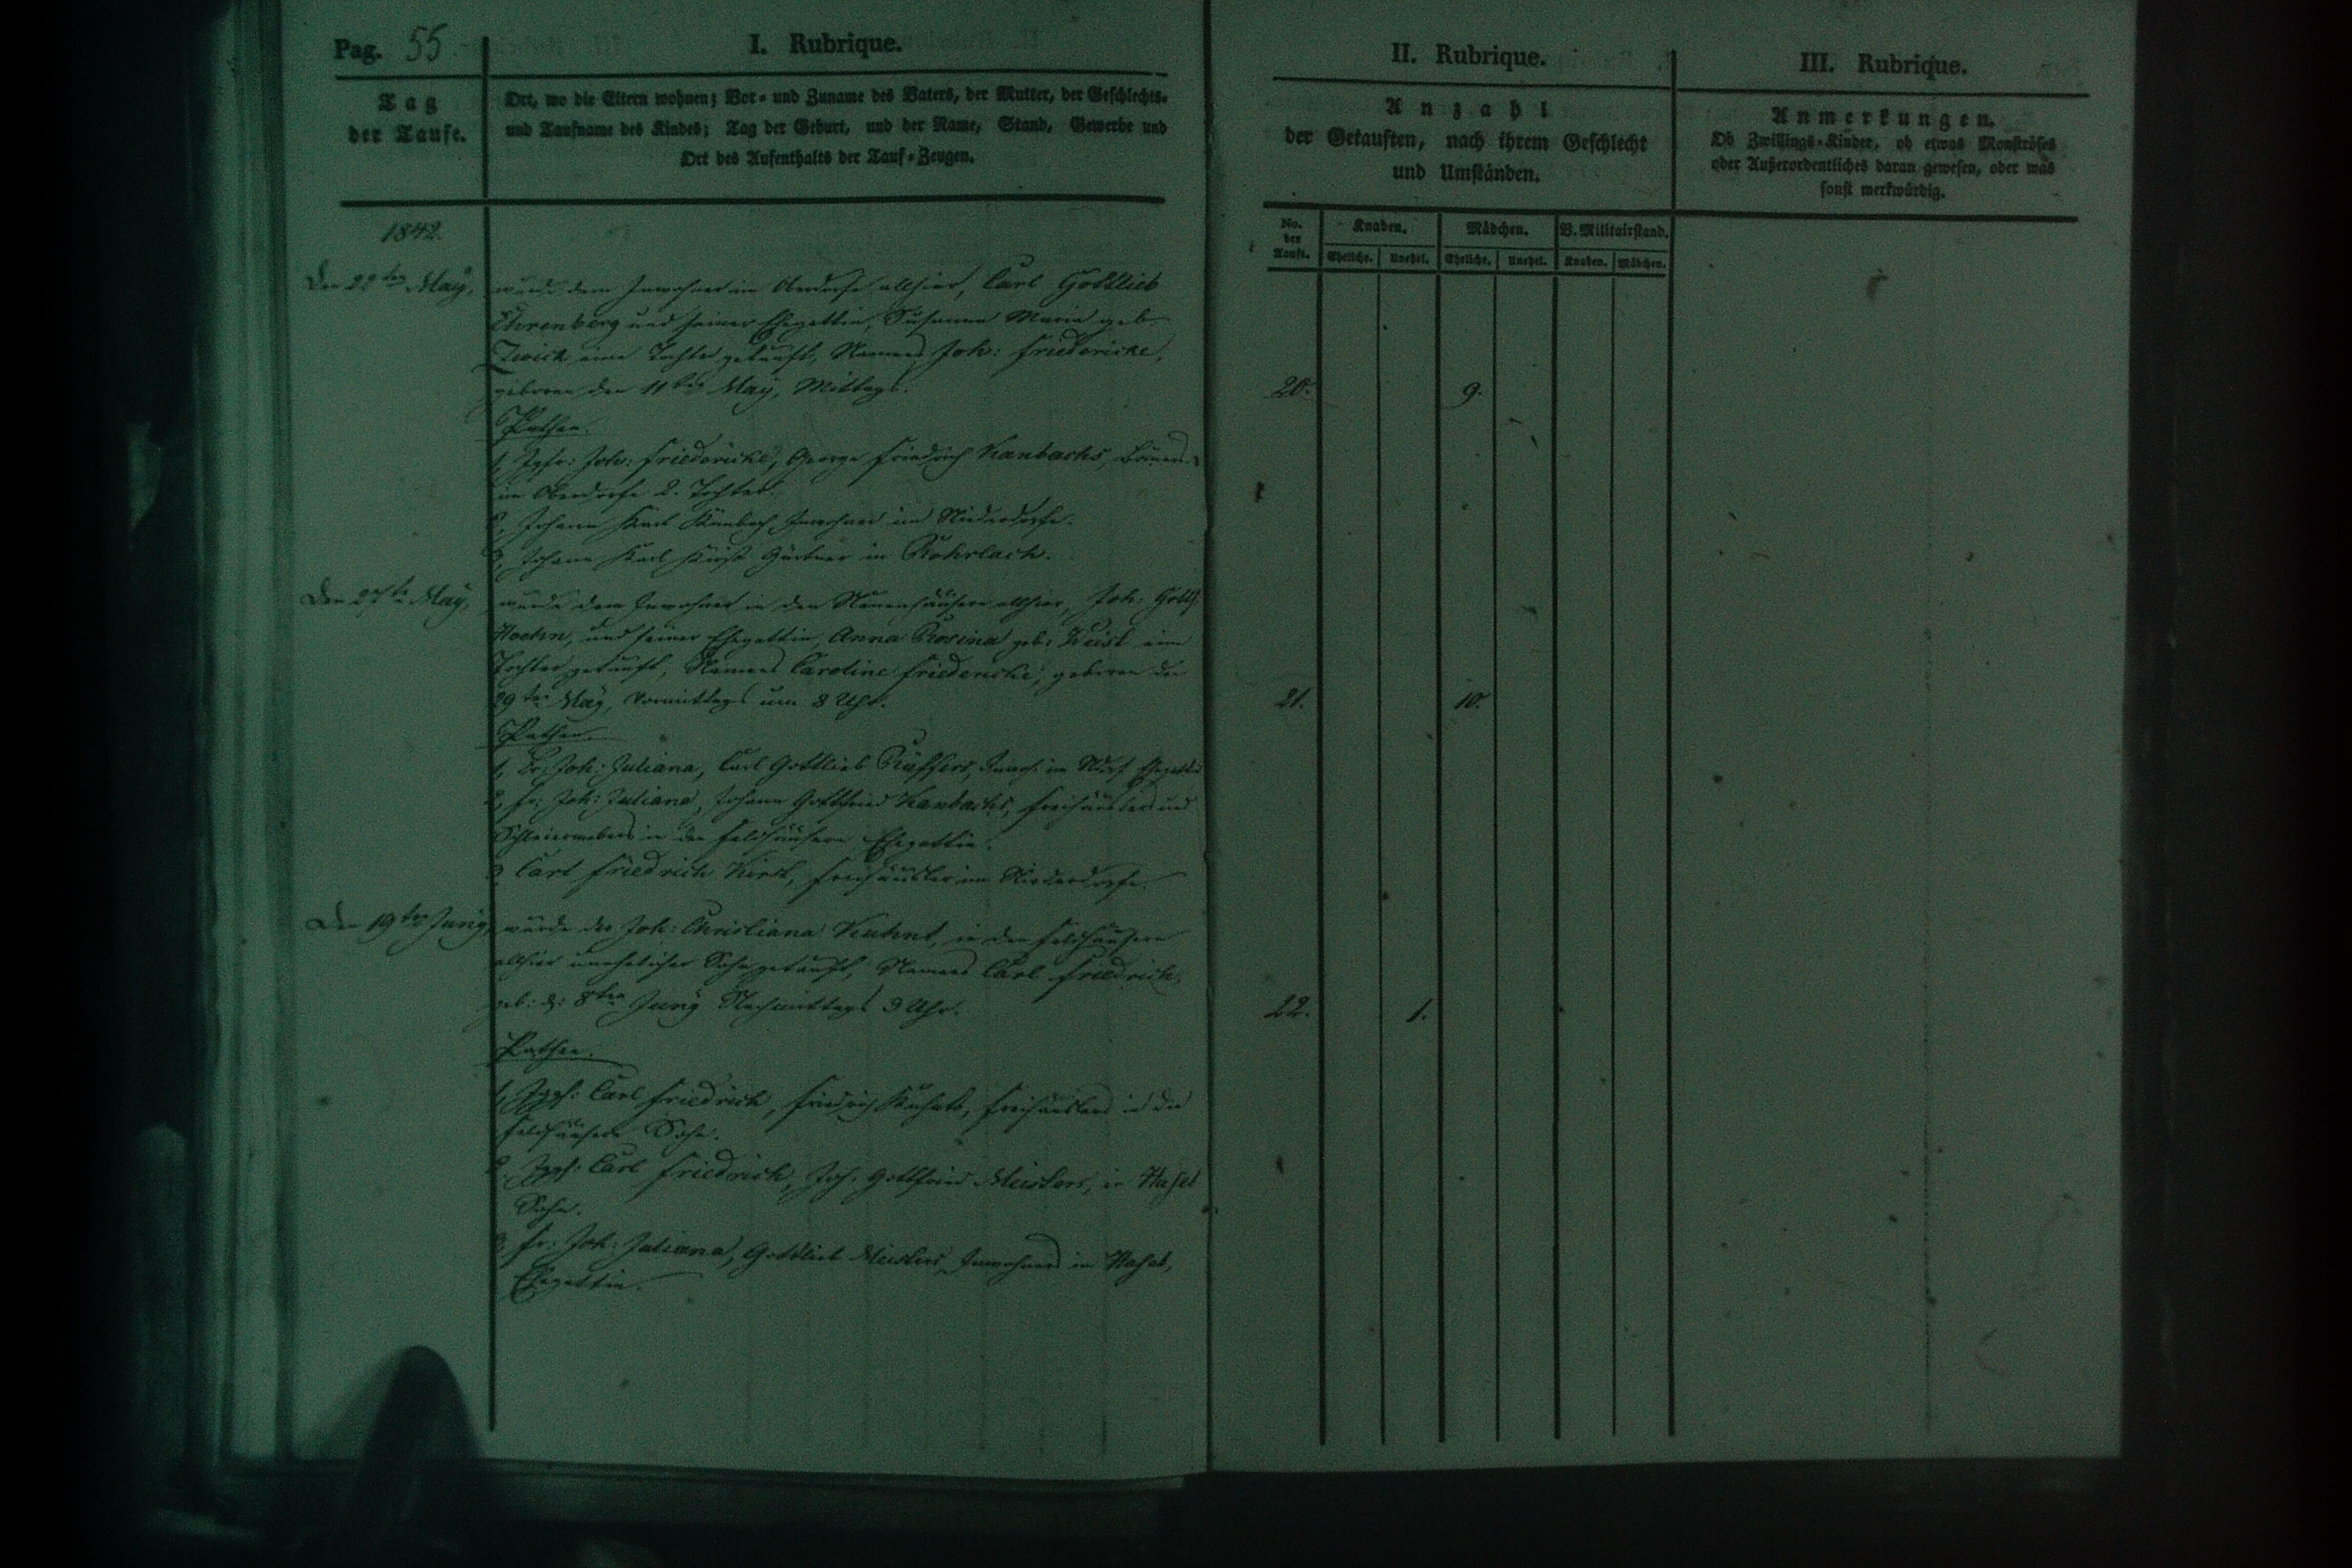 Pag. 55
I. Rubrique.
Tag
der Taufe.
Ort, wo die Eltern wohnen; Vor- und Zuname des Vaters, der Mutter, der Geschlechts-
und Taufname des Kindes; Tag der Geburt, und der Name, Stand, Gewerbe und
Ort des Aufenthalts der Tauf-Zeugen.
II. Rubrique.
Anzahl
der Getauften, nach ihrem Geschlecht
und Umständen.
III. Rubrique.
Anmerkungen.
Ob Zwillings-Kinder, ob etwas Monströses
oder Außerordentliches daran gewesen, oder was
sonst merkwürdig.
No. der Taufe.
Knaben. Mädchen. V. Militairstand.
Eheliche. Unehel. Eheliche. Unehel. Knaben. Mädchen.
1842.
Den 22ten May, wurde dem Inwohner im Oberdorfe allhier, Carl Gottlieb
Ehrenberg und seiner Ehegattin, Susanna Maria geb:
Zwick eine Tochter getauft, Namens Joh: Friedericke,
geboren den 11ten May, Mittags.
20. 9.
Pathen.
1, Jgfr: Joh: Friedericke, George Friedrich Kanbachs, Bauers
im Oberdorfe 2. Tochter.
2, Johann Karl Kanbach, Inwohner im Niederdorfe.
3, Johann Karl Gärtner in Rohrlach.
Den May, wurde dem Inwohner in den Neuenhäusern allhier, Joh: Gottf:
Hoehn, und seiner Ehegattin, Anna Rosina geb: Weist eine
Tochter getauft, Namens Caroline Friedericke, geboren den
May, Vormittags um 8 Uhr.
21. 10.
Pathen.
1, Fr: Joh: Juliana, Carl Gottlieb Rüffers, Inwoh: im Ehegattin
2, Fr: Joh: Juliana, Johann Gottfried Kanbachs, Freihäusler und
Schleierwebers in den Feldhäusern Ehegattin.
3, Carl Friedrich Hirt, Freihäusler im Niederdorfe.
Den 19ten Juny, wurde der Joh: Christiana Kuhnt, in den Feldhäusern
allhier unehelicher Sohn getauft, Namens Carl Friedrich,
geb: d: 8ten Juny Nachmittags 3 Uhr.
22. 1.
Pathen.
1, Jggs: Carl Friedrich, Friedrich Kuhnts, Freihäuslers in den
Feldhäusern Sohn.
2, Jggs: Carl Friedrich, Joh. Gottfried Meisters, in
Sohn.
3, Fr: Joh: Juliana, Gottlieb Meisters, Inwohners in
Ehegattin.